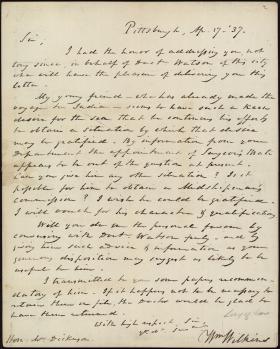 Pittsburgh, Ap. 17. '37.
Sir,
I had the honor of addressing you not
long since, in behalf of Doct. Watson of this city
who will have the pleasure of delivering you this
letter.
My young friend – who has already made the
voyage to India – seems to have such a keen
desire for the sea that he continues his efforts
to obtain a situation by which that desire
may be gratified. By information from your
Department the appointment of Surgeon's Mate
appears to be out of the question at present.
Can you give him any other situation? Is it
possible for him to obtain a Midshipman's
commission? I wish he could be gratified.
I will vouch for his character & qualifications.
Will you do me the personal favour by
conversing with Doct. Watson and by
giving him such advice & information as your
generous disposition may suggest as likely to be
useful to him.
I transmitted to you some papers recommen-
datory of him. If it happens not to be necessary to
retain them on file, the Doctor would be glad to
have them returned.
With high respect, Sir
Wm Wilkins
Hon. Mr Dickerson.